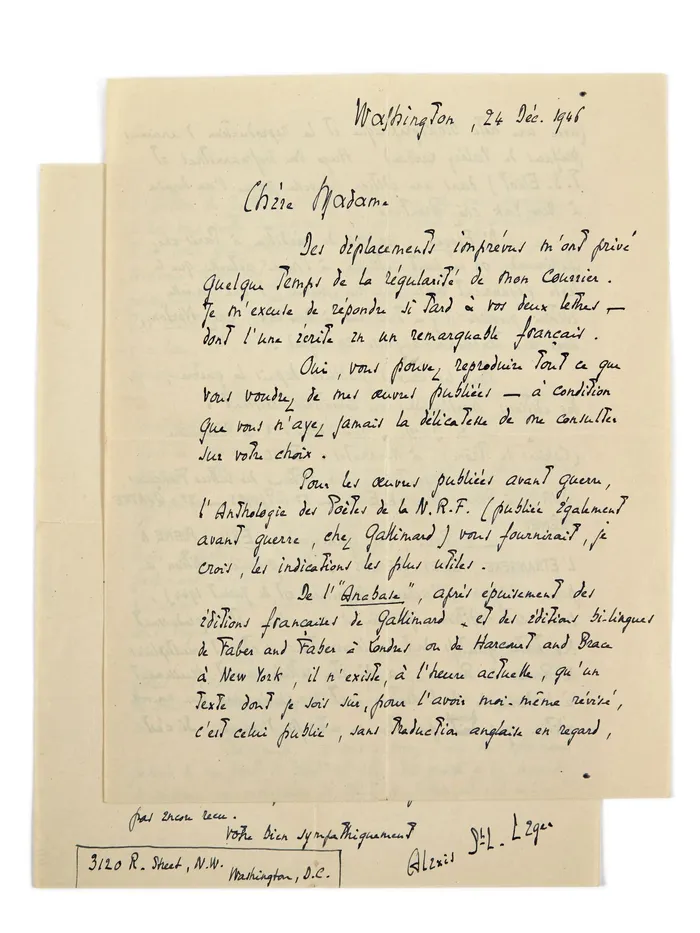 Washington, 24 Déc. 1946
Chère Madame
Des déplacements imprévus m'ont privé
quelque temps de la régularité de mon courrier.
Je m'excuse de répondre si tard à vos deux lettres —
dont l'une écrite en un remarquable français.
Oui, vous pouvez reproduire tout ce que
vous voudrez de mes œuvres publiées — à condition
que vous n'ayez jamais la délicatesse de me consulter
sur votre choix.
Pour les œuvres publiées avant guerre,
l'Anthologie des Poètes de la N.R.F. (publiée également
avant guerre, chez Gallimard) vous fournirait, je
crois, les indications les plus utiles.
De l'"Anabase", après épuisement des
éditions françaises de Gallimard - et des éditions bi-lingues
de Faber and Faber à Londres ou de Harcourt and Brace
à New York, il n'existe, à l'heure actuelle, qu'un
texte dont je sois sûr, pour l'avoir moi-même révisé,
c'est celui publié, sans traduction anglaise en regard,
pas encore reçu.
Votre bien sympathiquement
Alexis St. L. Léger
3120 R. Street, N.W.
Washington, D.C.